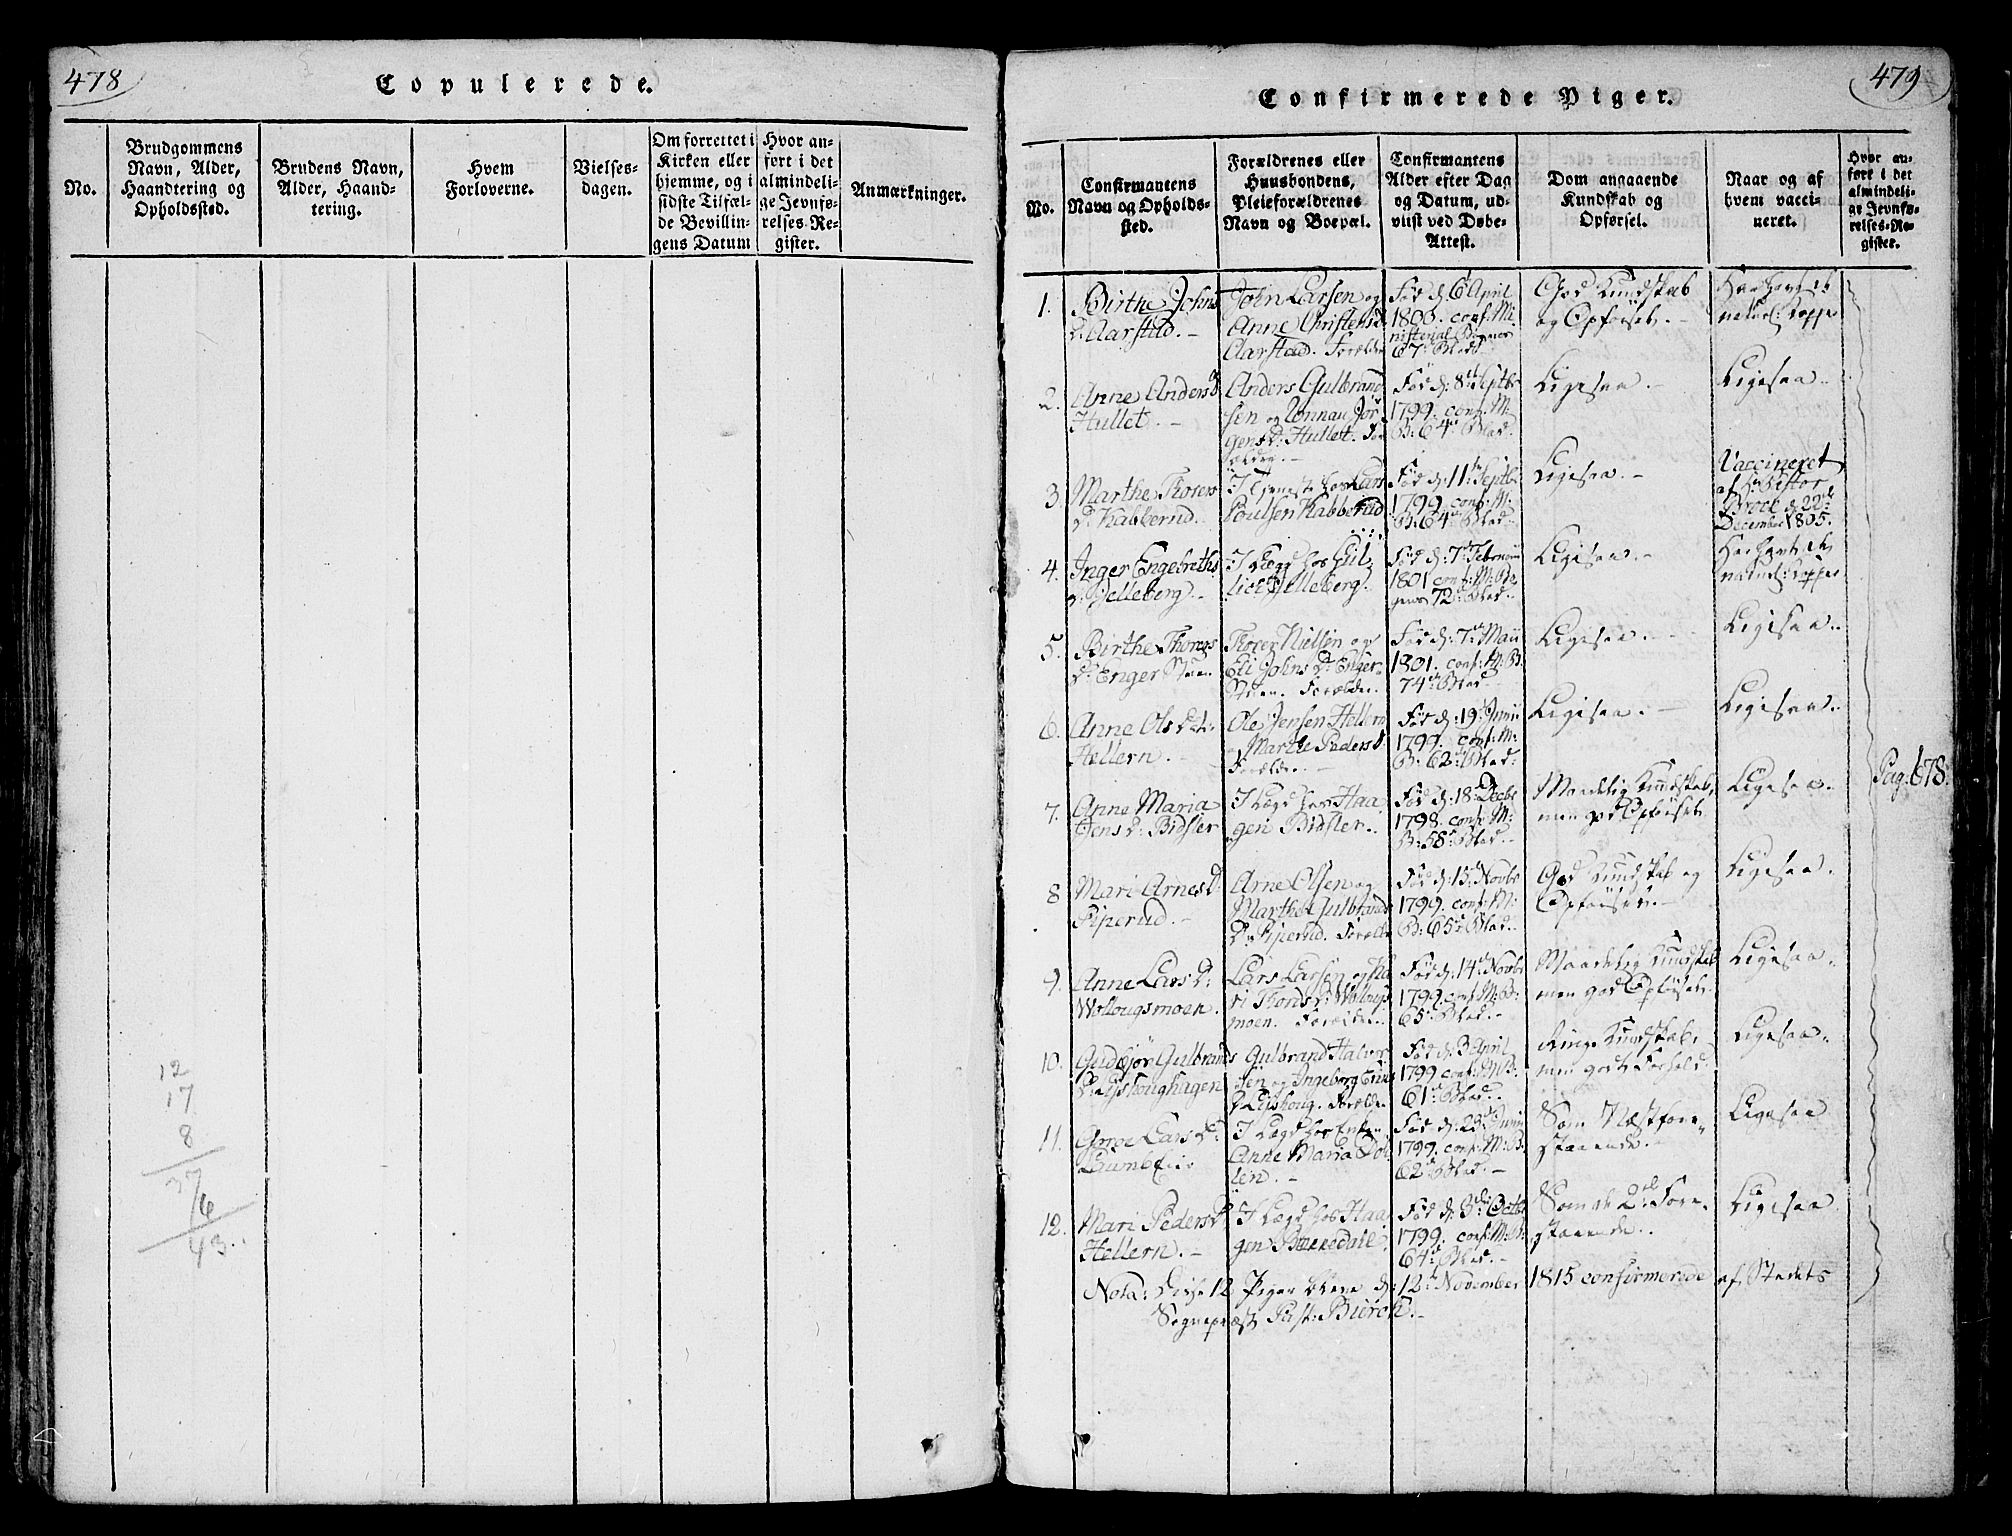 478
Copulerede.
No.
Brudgommens
Navn, Alder,
Haandtering og
Opholdssted.
Brudens Navn,
Alder, Haand-
tering.
Hvem
Forloverne.
Vielses-
dagen.
Om forrettet i
Kirken eller
hjemme, og i
sidste Tilfæl-
de Bevillin-
gens Datum
Hvor an-
ført i det
almindeli-
ge Jevnfø-
relses-Re-
gister.
Anmærkninger.
12
17
8
37
6
43
479
Confirmerede Piger.
No.
Confirmantens
Navn og Opholds-
sted.
Forældrenes eller
Huusbondens,
Pleieforældrenes
Navn og Boepæl.
Confirmantens
Alder efter Dag
og Datum, ud-
viist ved Døbe-
Attest.
Dom angaaende
Kundskab og
Opførsel.
Naar og af
hvem vacci-
neret.
Hvor an-
ført i det
almindeli-
ge Jevnfø-
relses-Re-
gister.
1.
Birthe Johns
D. Aarstad.
John Larsen og
Anne Christensd
Aarstad. Forældre
Fød d: 6 April
1800. conf. Mi-
nisterial Bogens
67de Blad
God Kundskab
og Opførsel.
Har havt de
naturl: Kopper
2.
Anne Andersd
Hullet.
Anders Gulbrand
sen og Jør
gensd: Hullet. For
ældre.
Fød d: 8de Septbr
1799. conf. M:
B: 64de Blad.
Ligesaa.
Ligesaa.
3.
Marthe Thorers
d: Kabberud.
I Tjeneste hos Lars
Poulsen Kabberud
Fød d: 11te Septbr
1799. conf. M:
B: 64de Blad.
Ligesaa.
Vaccineret
af
Brock d: 22de
December 1805.
4.
Inger Engebreths
d: Jelleberg.
I Lægd hos Gul
lich Jelleberg.
Fød d: 7de Februarii
1801 conf: M: Bo
gens 72de Blad.
Ligesaa.
Har havt de
naturl: Kopper
5.
Birthe Thorers
D: Enger Steen
Thorer Nielsen og
Eli Johns D: Enger
Steen. Forældre.
Fød d: 7de Maii
1801. conf: M: B:
74de Blad
Ligesaa.
Ligesaa.
6.
Anne Olsdt:
Hellern.
Ole Jensen Hellern
Marthe Pedersd.
Forældre.
Fød d: 19de Junii
1799. conf: M:
B: 62de Blad:
Ligesaa.
Ligesaa.
7.
Anne Maria
Jens D: Bidsler
I Lægd hos Haa
gen Bidsler.
Fød d: 18de Decbr
1798. conf: M:
B: 58de Blad.
Maadelig Kundskab,
men god Opførsel.
Ligesaa.
Pag: 678.
8
Mari Arnesd.
Piperud.
Arne Olsen og
Marthe Gulbrands
D: Piperud. Forældre
Fød d: 15de Novbr
1799. conf: M:
B: 65de Blad.
God Kundskab og
Opførsel.
Ligesaa.
9.
Anne Lars D:
Wollougsmoen.
Lars Larsen og Ka
ri Thords D: Wollougs
moen. Forældre.
Fød d: 14de Novbr
1799. conf: M: B:
65de Blad.
Maadelig Kundskab
men god Opførsel.
Ligesaa.
10.
Gulbrands
D:
Gulbrand Halvor
sen og Ingeborg
D. Forældre
Fød d: 3 April
1799 conf: M: B:
61de Blad.
Ringe Kundskab,
men godt Forhold.
Ligesaa.
11.
Lars D:
I Lægd hos Enken
Anne Maria Dol
len.
Fød d: 23de Junii
1799. conf: M: B:
62de Blad.
Som Næstfore-
staaende.
Ligesaa
12.
Mari Peders D
Hellern.
I Lægd hos Haa
gen
Fød d: 3die Octbr
1799. conf: M: B:
64de Blad.
Som de 2de Fore-
staaende.
Ligesaa
Nota: Disse 12 Piger bleve d: 12te November 1815 confirmerede af Stedets
Sognepræst Past: